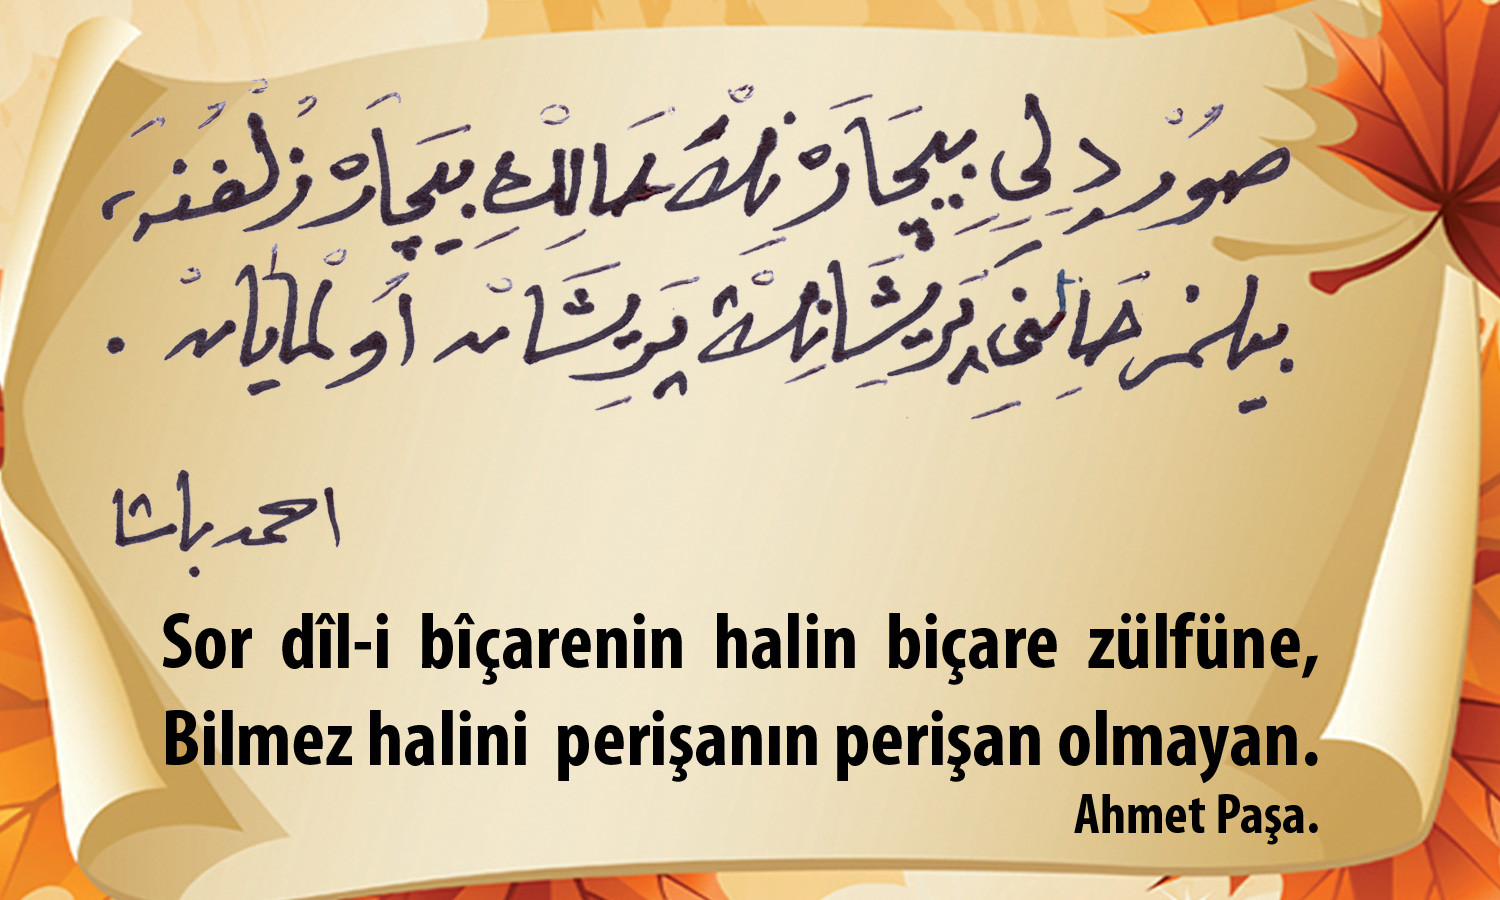 صُورْ دِلِي بِيچَارَهْ نِڭْ حَالِڭِ بِيچَارَهْ زُلْفُنَه،
بيلمز حَالِنِي پَرِيشَانِڭْ پَرِيشَانْ اُولْمَايَانْ .
احمد باشا
Sor dîl-i bîçarenin halin biçare zülfüne,
Bilmez halini perişanın perişan olmayan.
Ahmet Paşa.